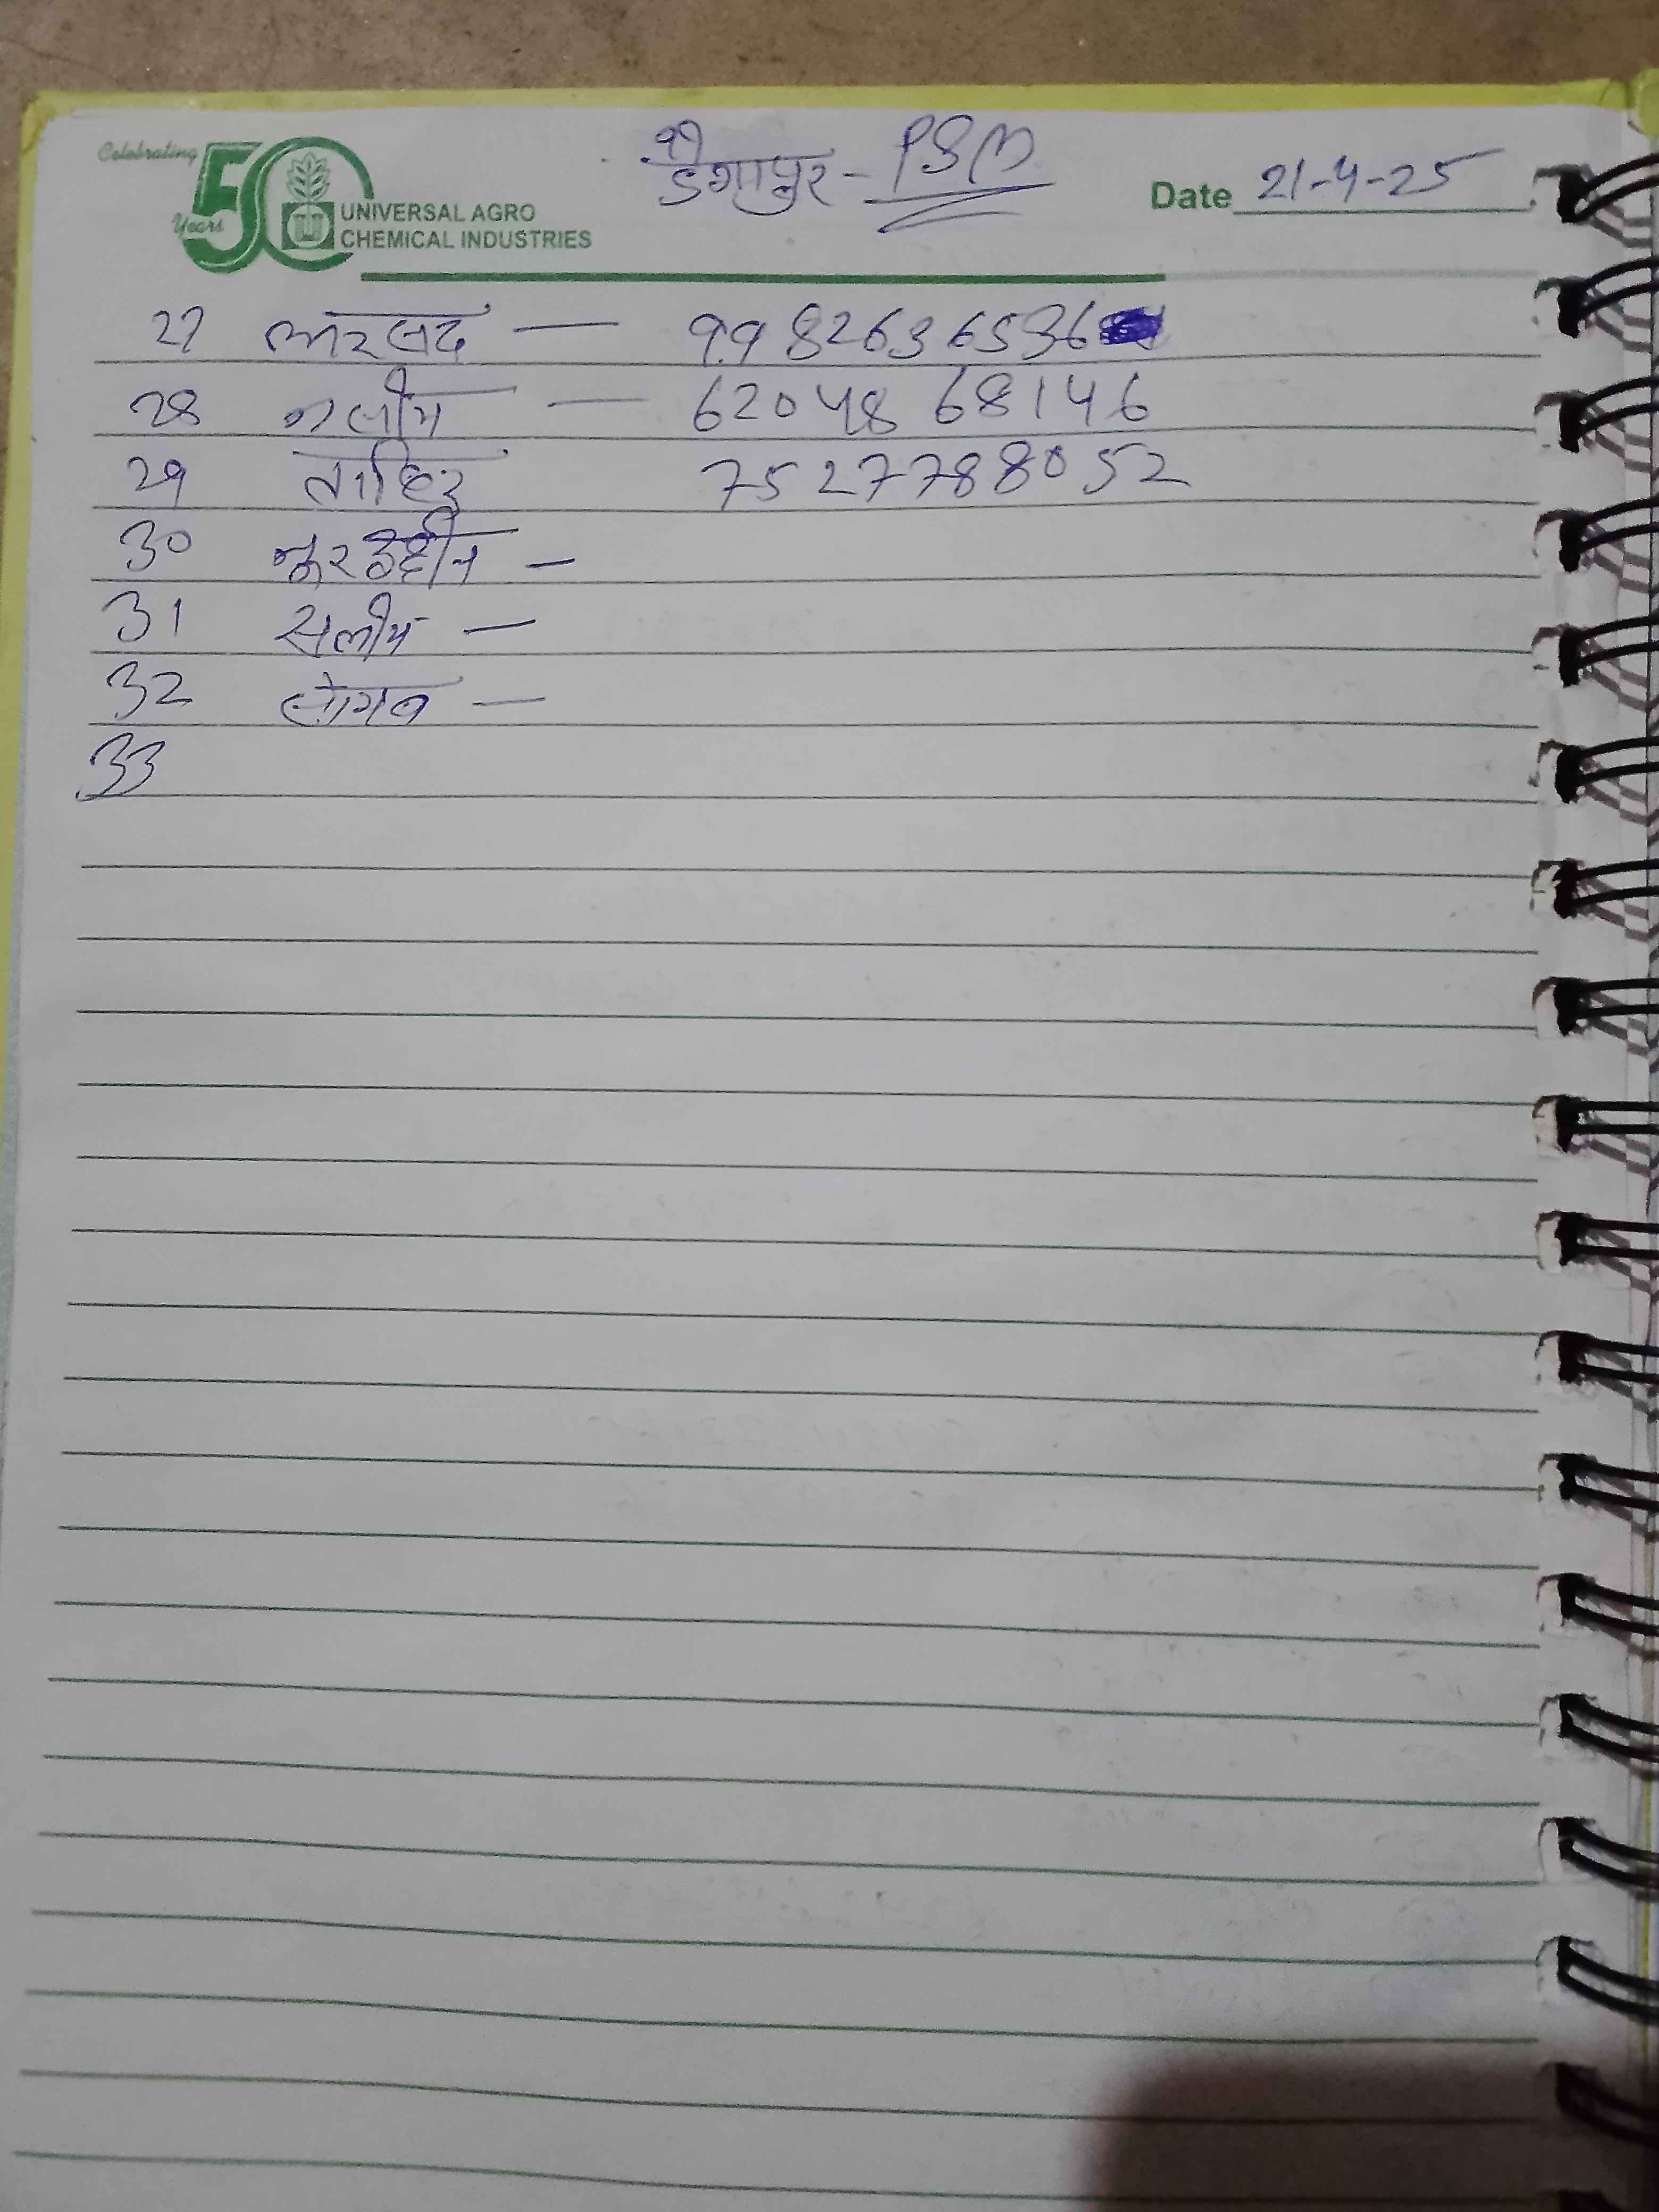 Celebrating
50
Years
UNIVERSAL AGRO
CHEMICAL INDUSTRIES
डेगापुर - PSM
Date 21-4-25
27 — 9982636536
28 — 6204868146
29 ताहिर 7527788052
30 नूरउद्दीन —
31 सलीम —
32 —
33